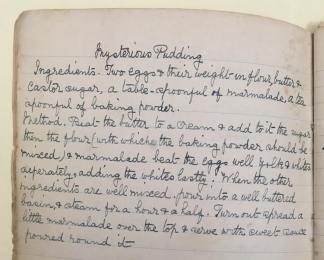 Mysterious Pudding
Ingredients. Two eggs & their weight in flour, butter &
castor sugar, a table-spoonful of marmalade, a tea
spoonful of baking powder.
Method. Beat the butter to a cream & add to it the sugar
then the flour (with which the baking powder should be
mixed) & marmalade beat the eggs well yolks & whites
seperately, adding the whites lastly. When the other
ingredients are well mixed, pour into a well buttered
basin, & steam for a hour & a half. Turn out spread a
little marmalade over the top & serve with sweet sauce
poured round it